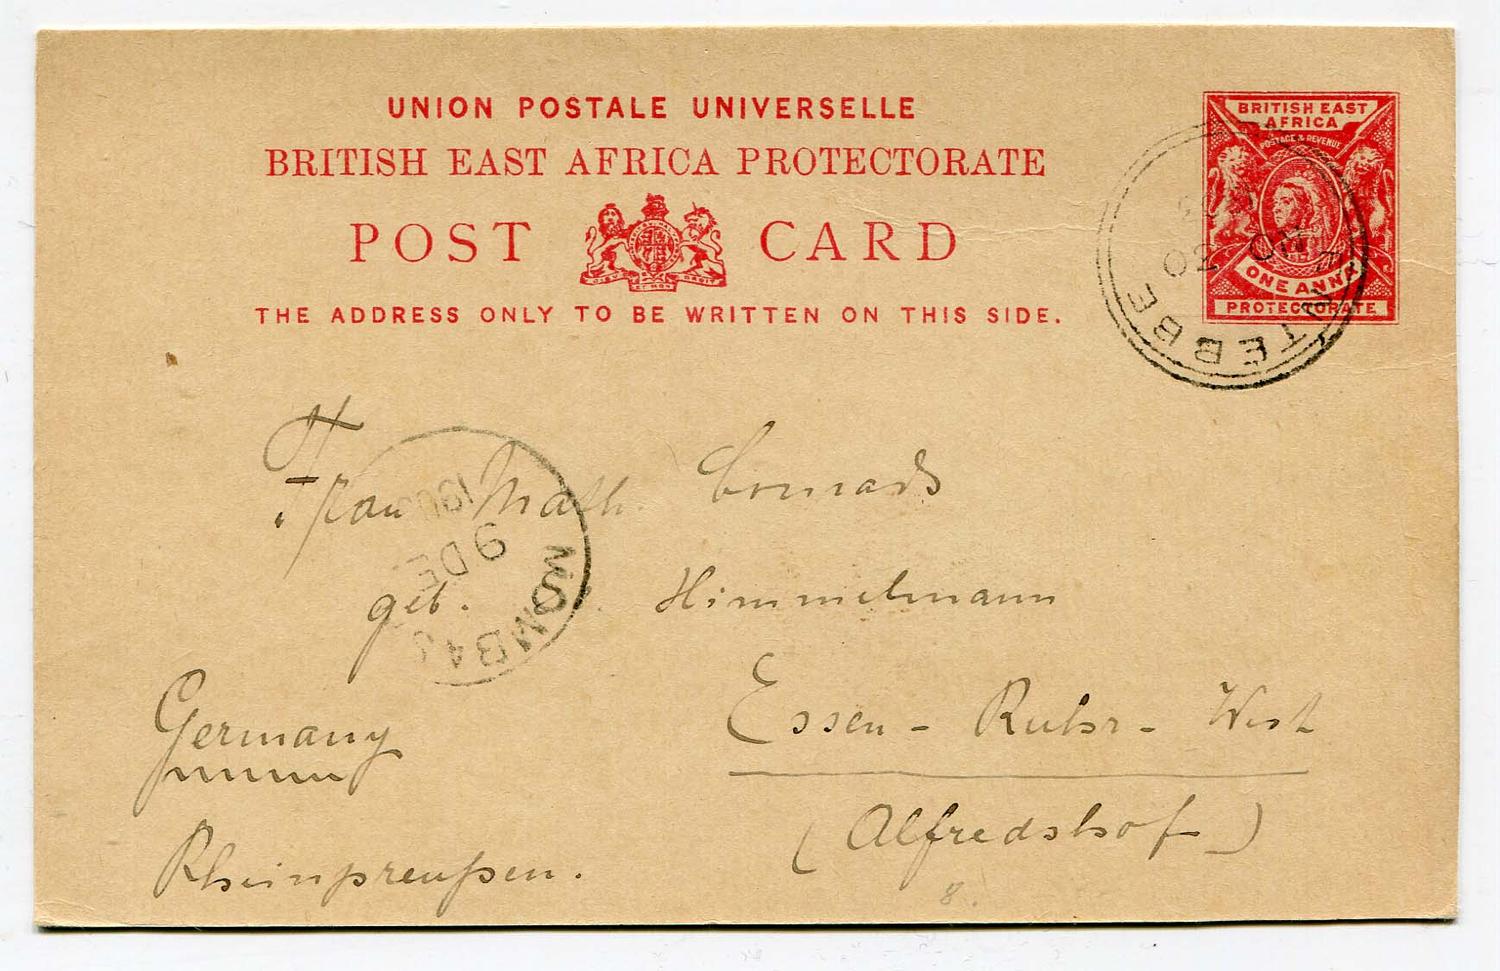 UNION POSTALE UNIVERSELLE
BRITISH EAST AFRICA PROTECTORATE
POST CARD
THE ADDRESS ONLY TO BE WRITTEN ON THIS SIDE.
BRITISH EAST
AFRICA
POSTAGE & REVENUE
ONE ANNA
PROTECTORATE
NTEBBE
NO 30
Frau Math. Conrads
geb. Himmelmann
Essen - Ruhr - West
(Alfredshof)
Germany
Rheinpreußen.
8.
MOMBAS
9 DE
190